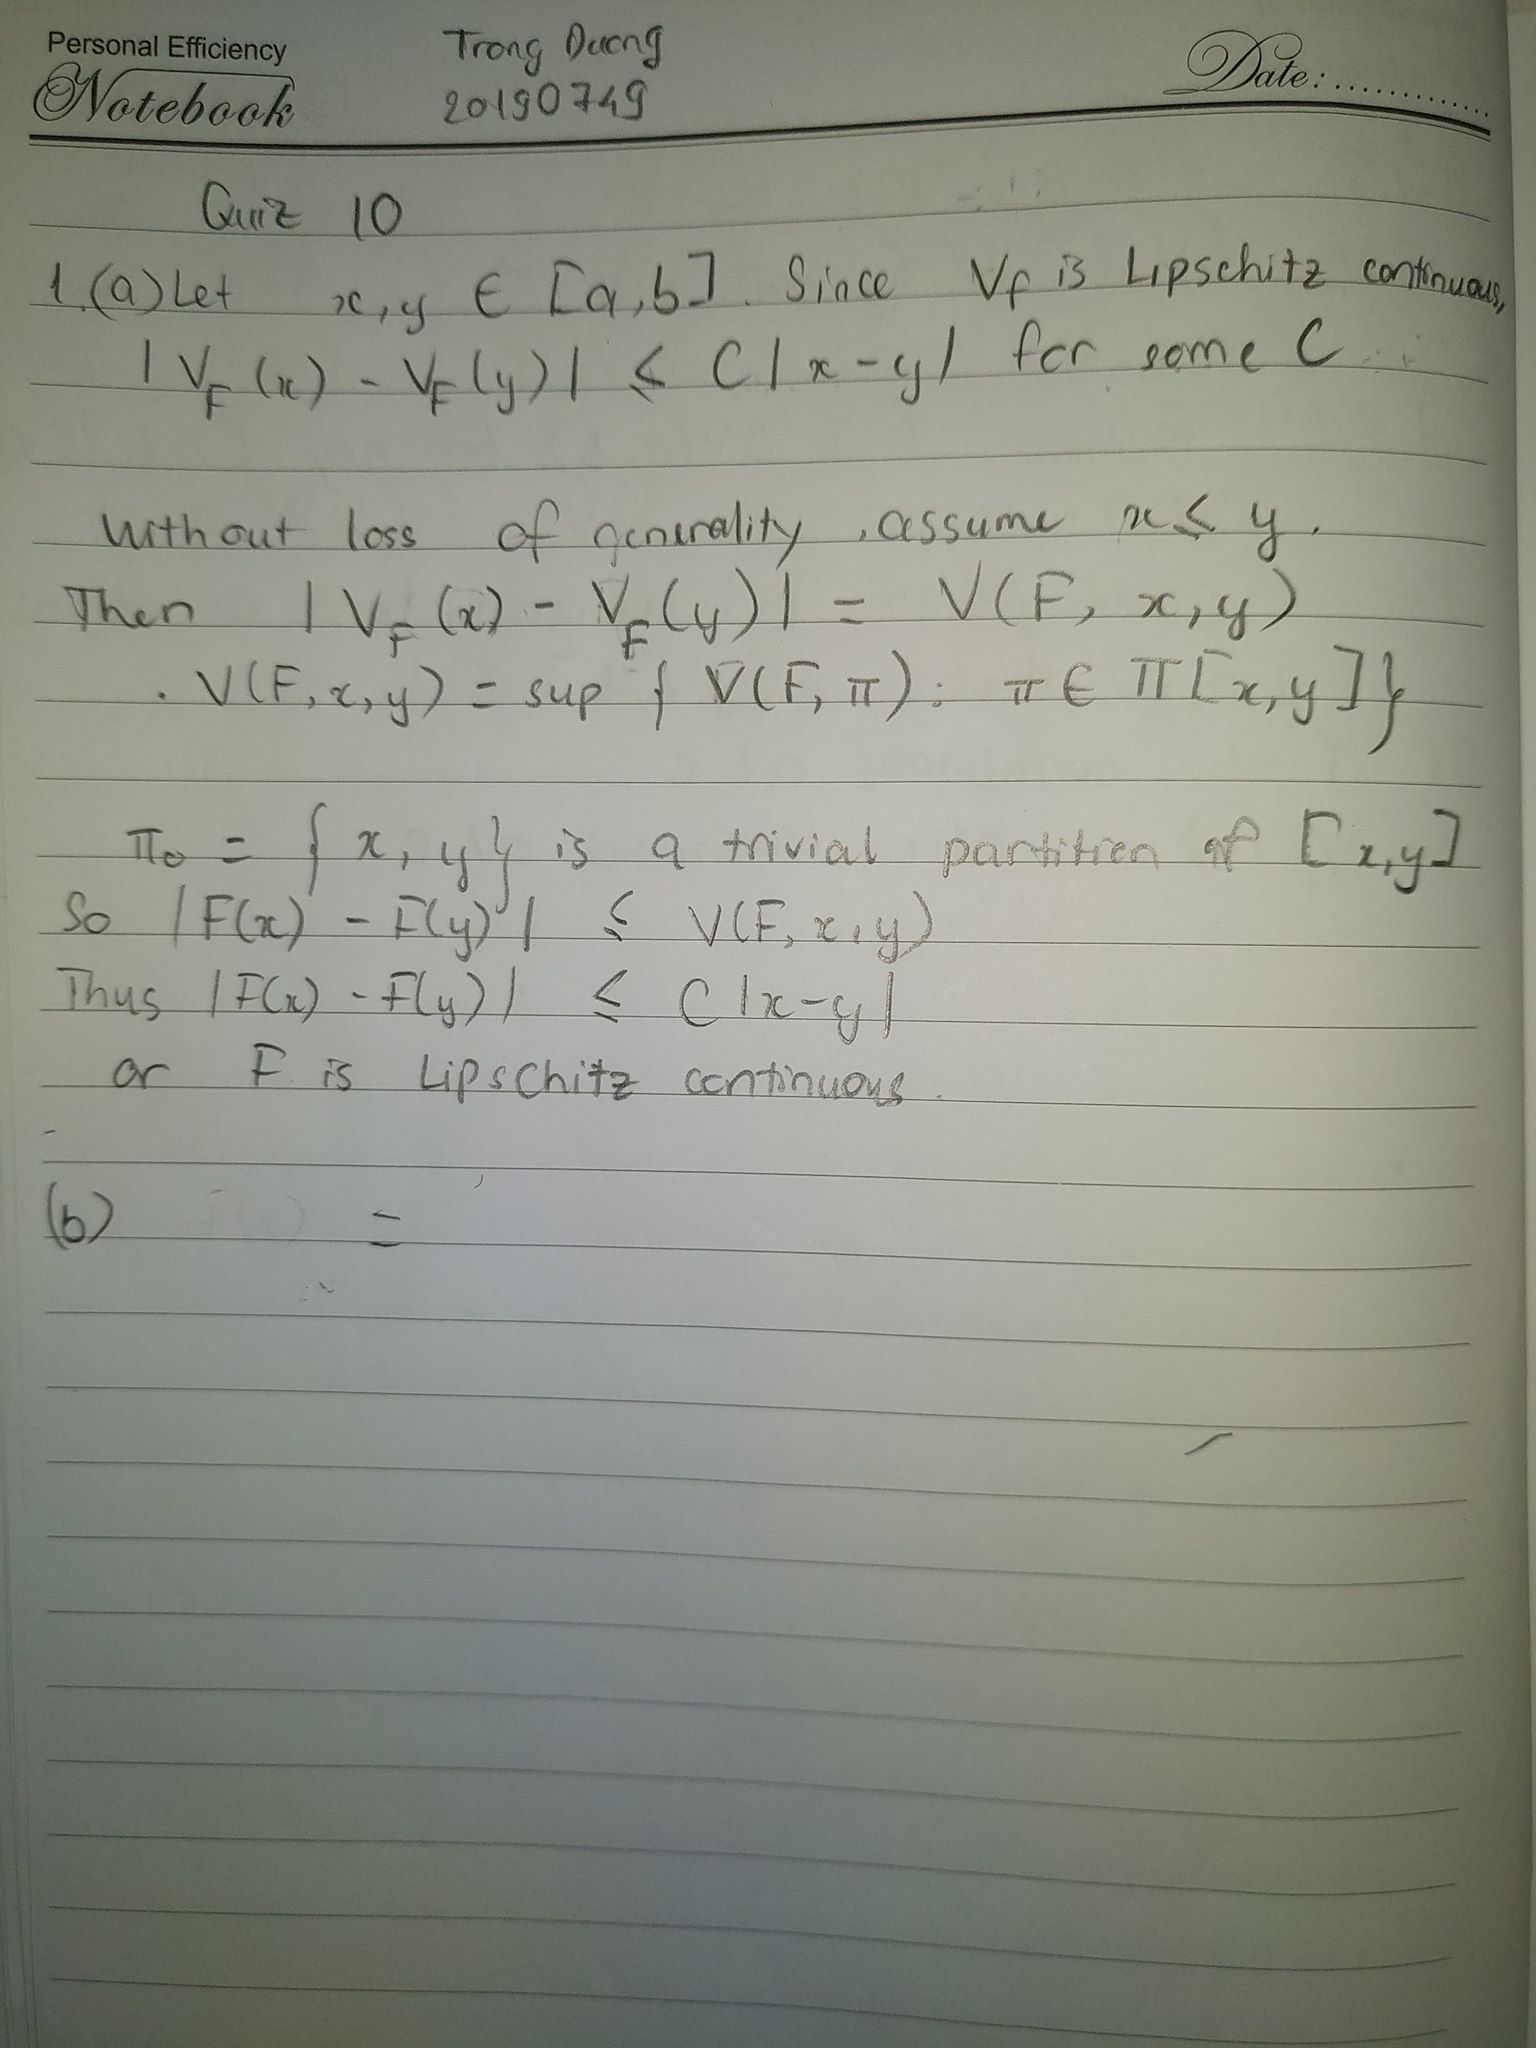 Personal Efficiency
Notebook
Trong Duong
20190749
Date:..............
Quiz 10
1.(a) Let x, y ∈ [a,b]. Since V_F is Lipschitz continuous,
|V_F(x) - V_F(y)| ≤ C|x-y| for some C
Without loss of generality, assume x ≤ y.
Then |V_F(x) - V_F(y)| = V(F, x, y)
. V(F, x, y) = sup { V(F, π) : π ∈ Π[x,y] }
π₀ = {x, y} is a trivial partition of [x,y]
So |F(x) - F(y)| ≤ V(F, x, y)
Thus |F(x) - F(y)| ≤ C|x-y|
or F is Lipschitz continuous.
(b) =